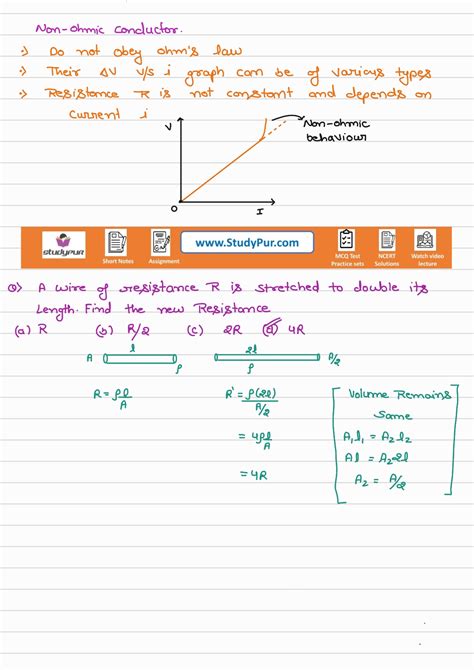 Non-ohmic conductor.
:) Do not obey ohm's law
:) Their ΔV v/s i graph can be of various types
:) Resistance R is not constant and depends on
current i
V
Non-ohmic
behaviour
O
I
studypur
Short Notes
Assignment
www.StudyPur.com
MCQ Test
Practice sets
NCERT
Solutions
Watch video
lecture
Q) A wire of resistance R is stretched to double its
Length. Find the new Resistance
(a) R (b) R/2 (c) 2R (d) 4R
A l ρ
2l A/2 ρ
R = ρl/A
R' = ρ(2l)/A/2
= 4ρl/A
= 4R
Volume Remains
Same
A₁l₁ = A₂l₂
Al = A₂2l
A₂ = A/2